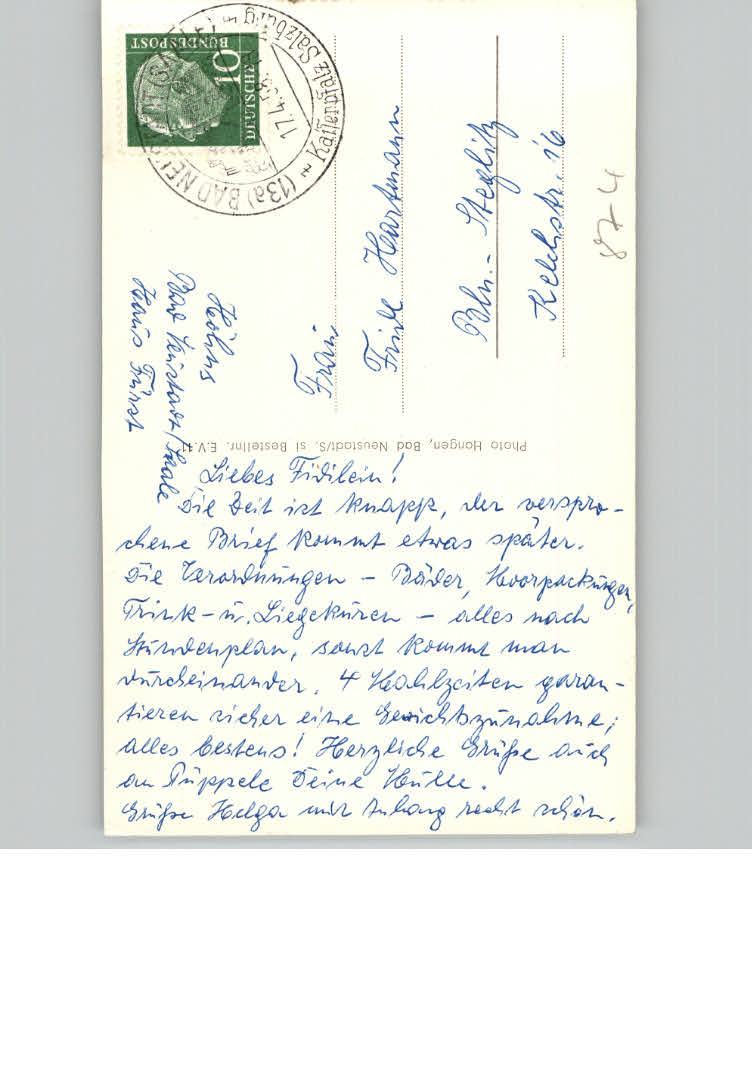 Liebes Fidilein!
Die Zeit ist knapp, der verspro-
chene Brief kommt etwas später.
Die Verordnungen – Bäder, Moorpackungen,
Trink- u. Liegekuren – alles nach
Stundenplan, sonst kommt man
durcheinander. 4 Mahlzeiten garan-
tieren sicher eine Gewichtszunahme;
alles bestens! Herzliche Grüße auch
an Püppele Deine Mulle.
Grüße Helga mit Anhang recht schön.
Höhns
Bad Neustadt/Saale
Haus Fürst
Frau
Friedl Hartmann
Bln.- Steglitz
Kelchstr. 16
874
Photo Hongen, Bad Neustadt/S. si Bestellnr. E.V.11
DEUTSCHE
BUNDESPOST
10
(13a) BAD NEUSTADT (SAALE)
Kaiserpfalz Salzburg
17.4.58